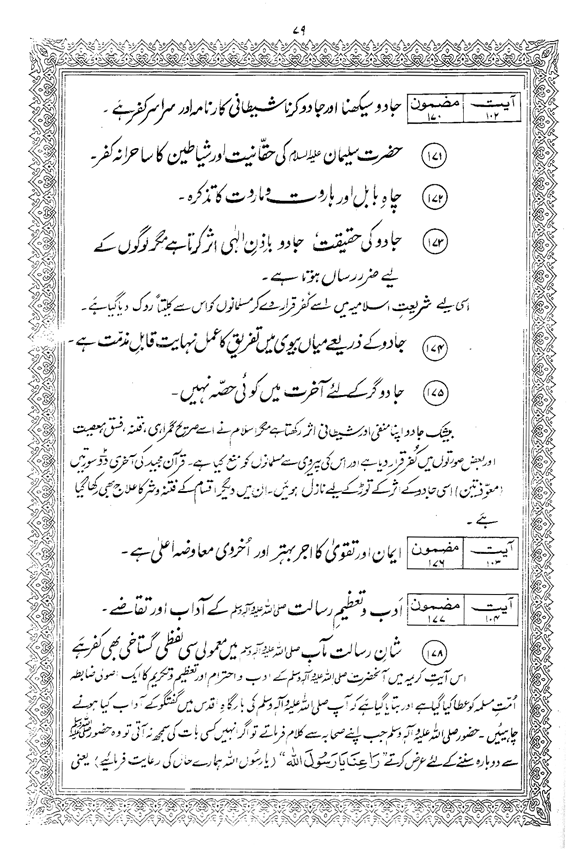 ۷۹
آیت ۱۰۲ مضمون ۱۷۰ جادو سیکھنا اور جادو کرنا شیطانی کارنامہ اور سراسر کفر ہے ۔
۱۷۱ حضرت سلیمان علیہ السلام کی حقّانیت اور شیاطین کا ساحرانہ کفر۔
۱۷۲ چاہِ بابل اور ہاروت و ماروت کا تذکرہ ۔
۱۷۳ جادو کی حقیقت‘ جادو باِذنِ الٰہی اثر کرتا ہے مگر لوگوں کے
لیے ضرر رساں ہوتا ہے ۔
اسی لیے شریعتِ اسلامیہ میں اسے کُفر قرار دے کر مسلمانوں کو اس سے کلیتاً روک دیا گیا ہے۔
۱۷۴ جادو کے ذریعے میاں بیوی میں تفریق کا عمل نہایت قابلِ مذمّت ہے ۔
۱۷۵ جادوگر کے لئے آخرت میں کوئی حصّہ نہیں ۔
بیشک جادو اپنا منفی اور شیطانی اثر رکھتا ہے مگر اسلام نے اسے صریح گمراہی، فتنہ، فسق، معصیت
اور بعض صورتوں میں کُفر قرار دیا ہے اور اس کی پیروی سے مسلمانوں کو منع کیا ہے۔ قرآن مجید کی آخری دو سورتیں
(معوّذتین) اسی جادو کے اثر کے توڑ کے لیے نازل ہوئیں۔ ان میں دیگر اقسام کے فتنہ و شر کا علاج بھی رکھا گیا
ہے ۔
آیت ۱۰۳ مضمون ۱۷۶ ایمان اور تقویٰ کا اجر بہتر اور اُخروی معاوضہ اَعلیٰ ہے ۔
آیت ۱۰۴ مضمون ۱۷۷ اَدب و تعظیمِ رسالت صلی اللہ علیہ وآلہ وسلم کے آداب اور تقاضے ۔
۱۷۸ شانِ رسالت مآب صلی اللہ علیہ وآلہ وسلم میں معمولی سی لفظی گستاخی بھی کفر ہے
اس آیتِ کریمہ میں آنحضرت صلی اللہ علیہ وآلہ وسلم کے ادب و احترام اور تعظیم و تکریم کا ایک اصولی ضابطہ
اُمّتِ مسلمہ کو عطا کیا گیا ہے اور بتایا گیا ہے کہ آپ صلی اللہ علیہ وآلہ وسلم کی بارگاہِ اقدس میں گفتگو کے آداب کیا ہونے
چاہیئیں ۔ حضور صلی اللہ علیہ وآلہ وسلم جب اپنے صحابہ سے کلام فرماتے تو اگر انہیں کسی بات کی سمجھ نہ آتی تو وہ حضور صلی اللہ علیہ وآلہ وسلم
سے دوبارہ سننے کے لئے عرض کرتے ”رَاعِنَا یَا رَسُوْلَ اللہ“ (یا رسُول اللہ ہمارے حال کی رعایت فرمائیے) یعنی